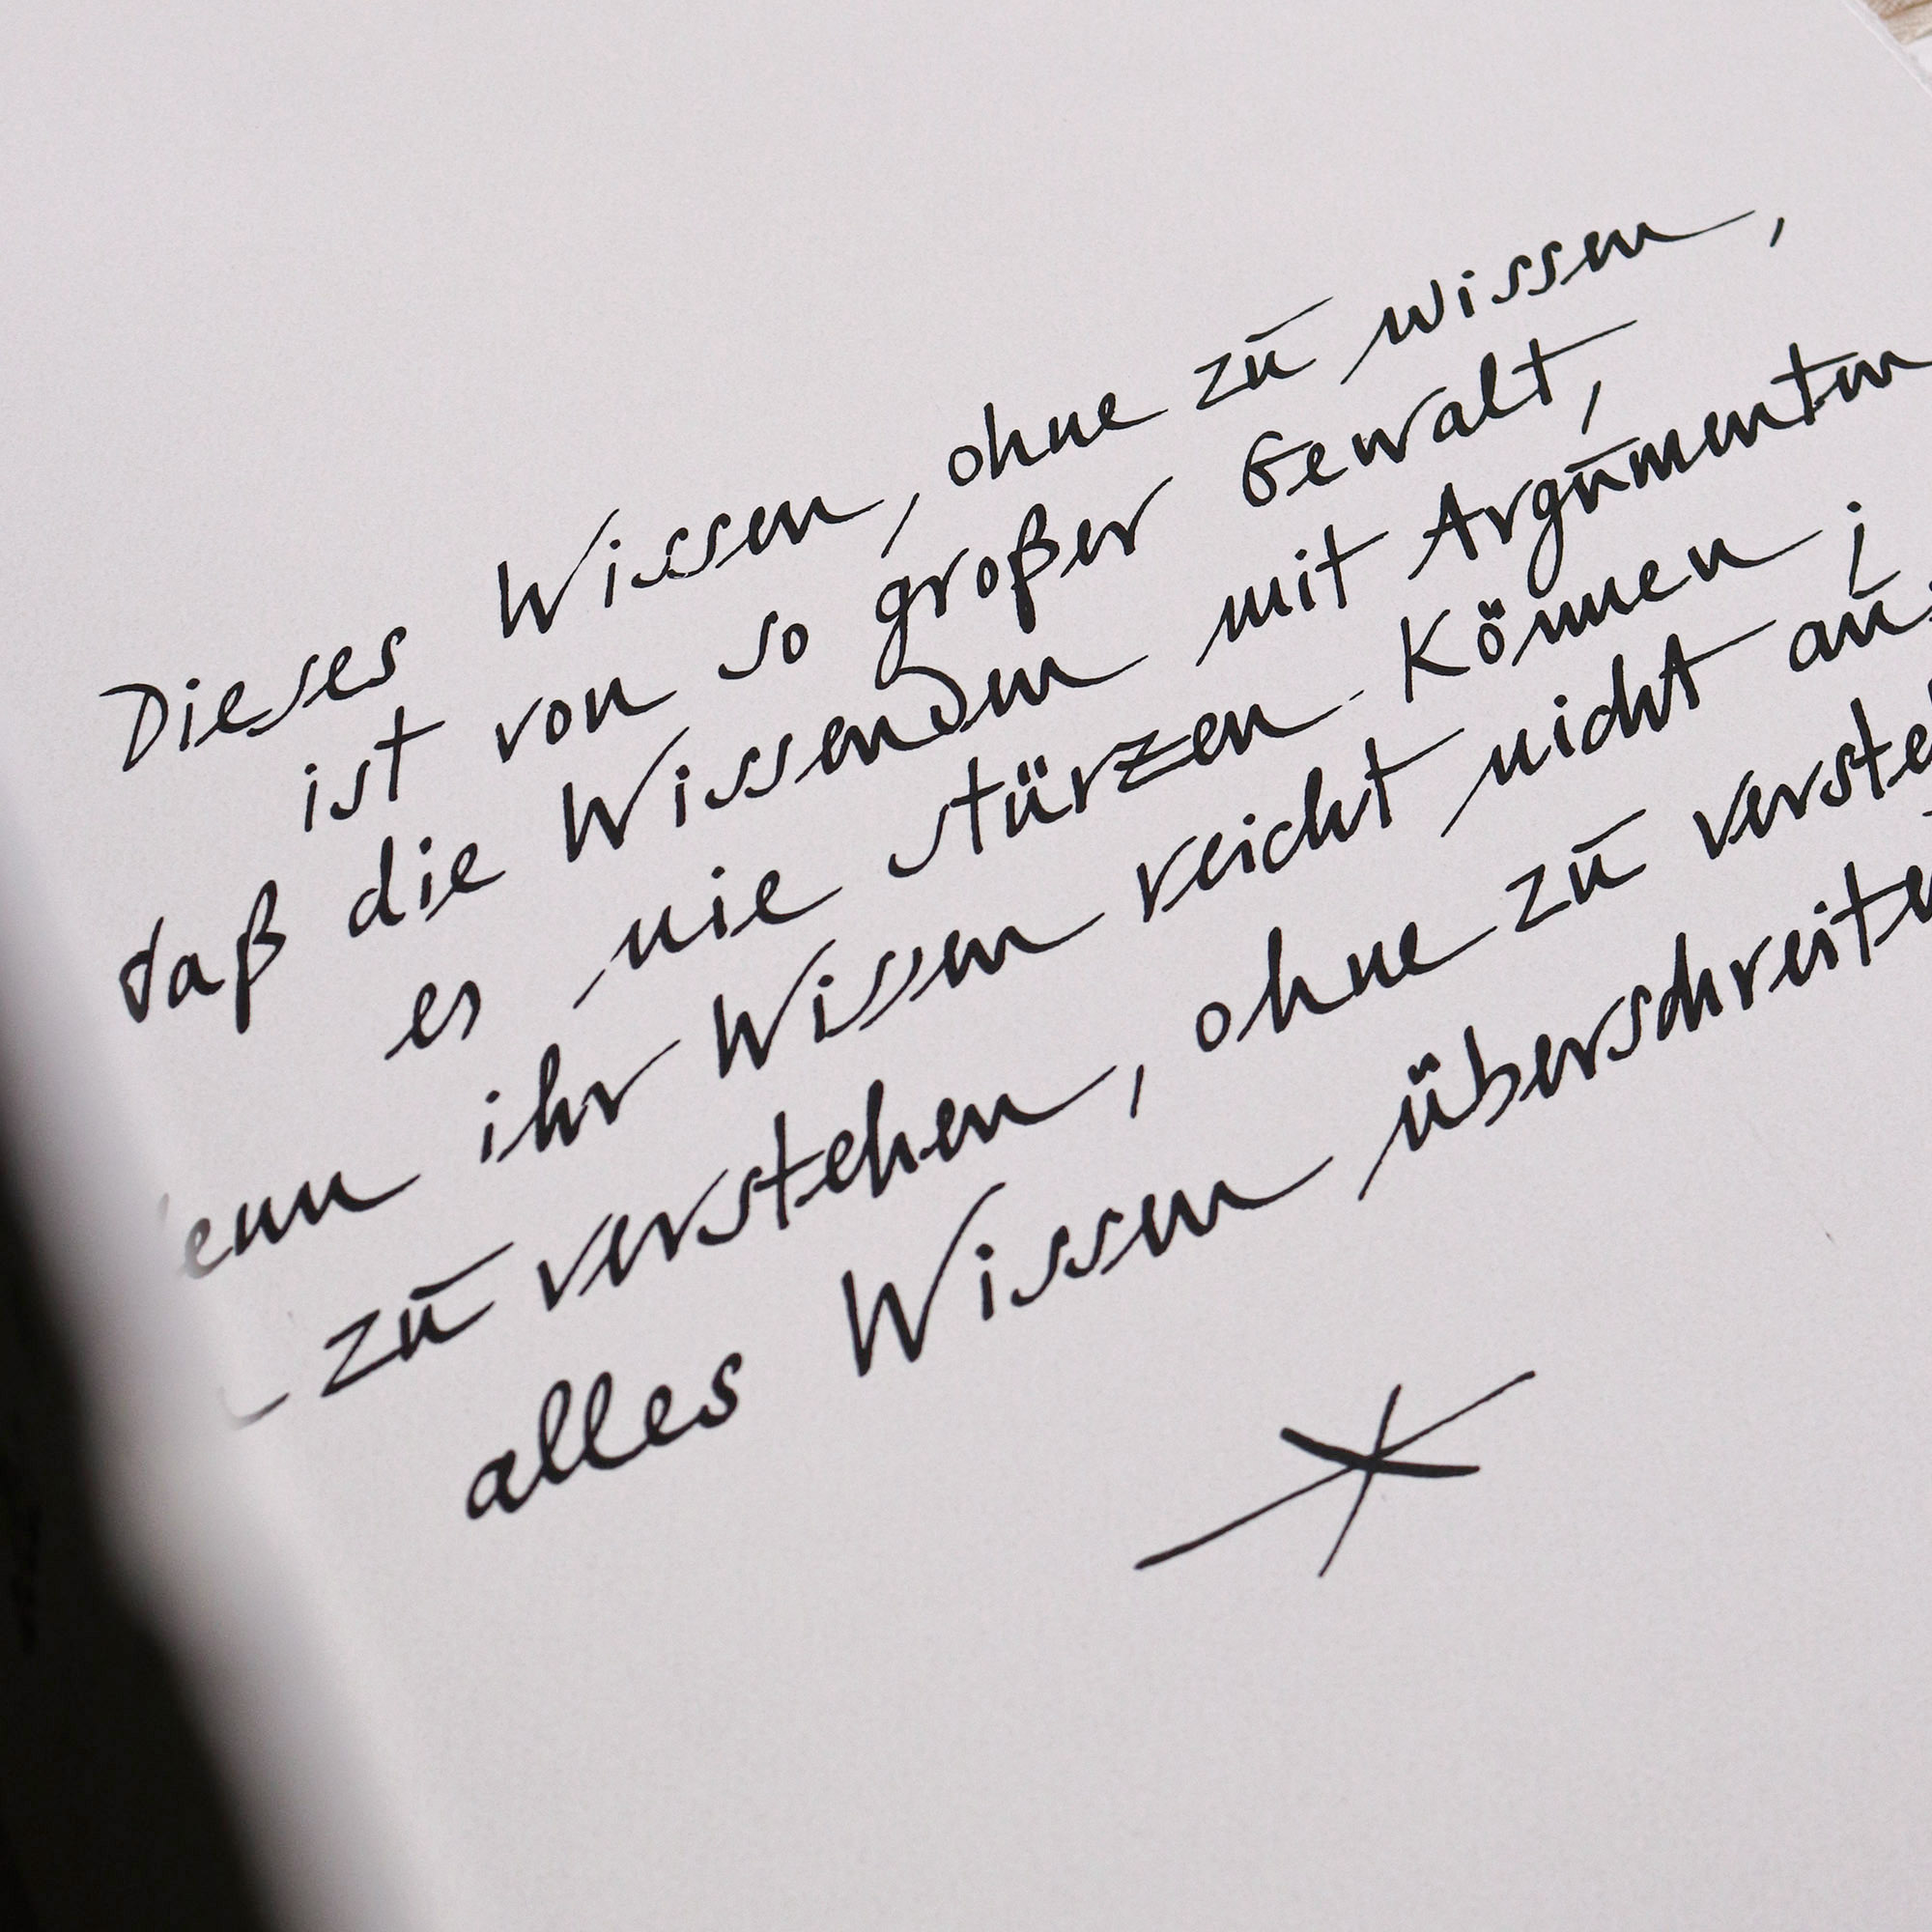 Dieses Wissen, ohne zu wissen,
ist von so großer Gewalt,
daß die Wissenden mit Argumenten
es nie stürzen können;
denn ihr Wissen reicht nicht aus,
zu verstehen, ohne zu verste
alles Wissen überschreite